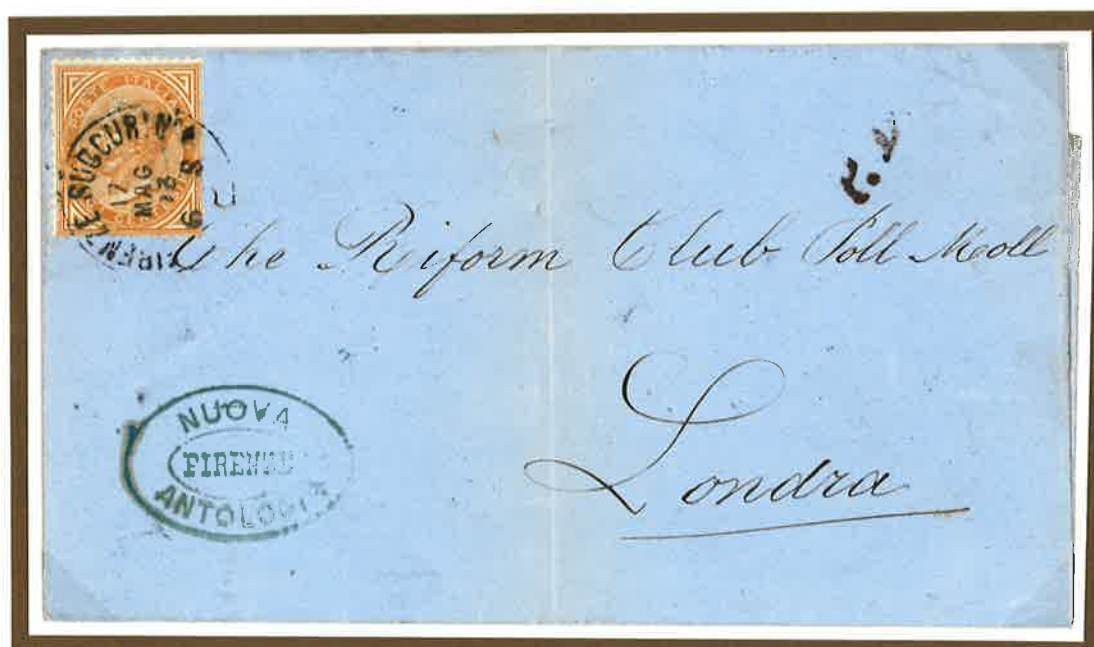 POSTE ITALIANE
FIRENZE SUCCUR.N.
17
MAG
73
6 S
The Riform Club Poll Moll
Londra
NUOVA
FIRENZE
ANTOLOGIA